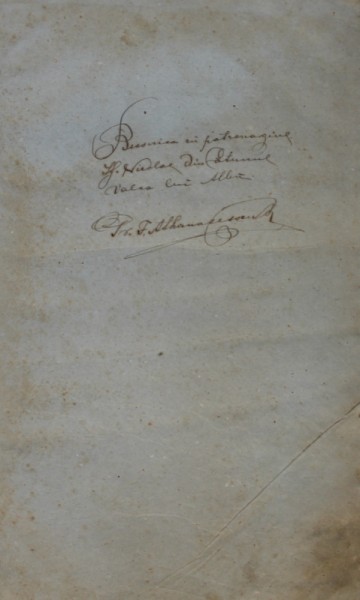 Biserica cu patronagiul
Sf. Nicolae din Cătunul
Valea lui Alb
Pr. I. Athanasescu